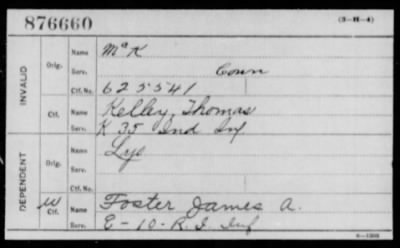 876660 (3-H-4)
INVALID
Orig. Name McK
Serv. Conn
Ctf. No. 625541
Ctf. Name Kelley, Thomas
Serv. K 35 Ind Inf
DEPENDENT
Orig. Name Lys
Serv.
Ctf. No.
W
Ctf. Name Foster James A.
Serv. E-10-R.I. Inf